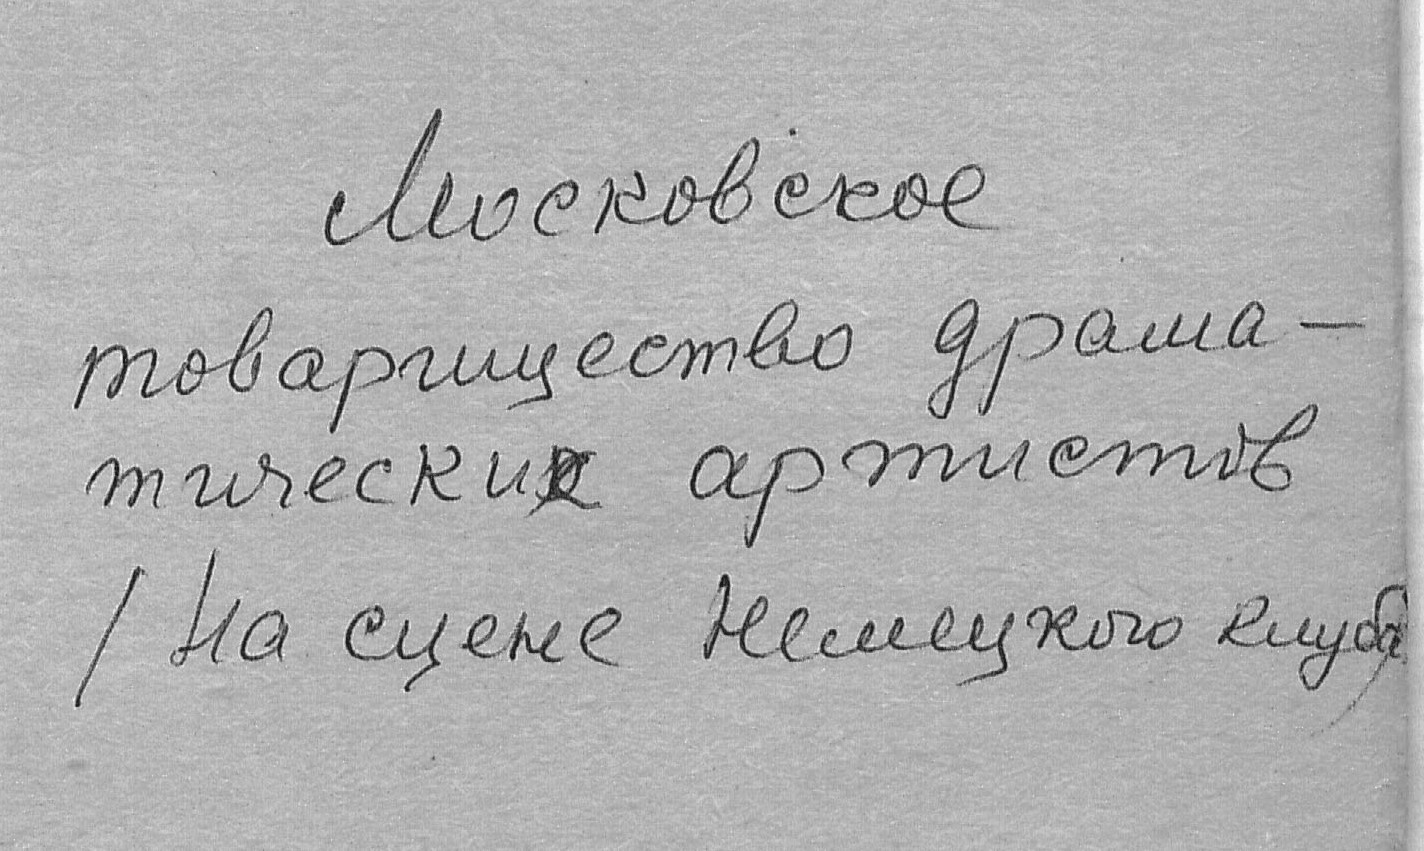 Московское
товарищество драма-
тических артистов
/На сцене Немецкого клуба/